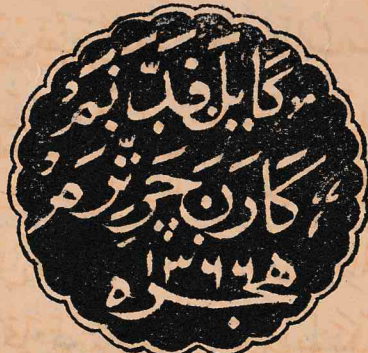 كَايَلْ فَدَّنَمْ
كَارَنَ چَرِتِّرَمْ
١٣٦٦
هجره